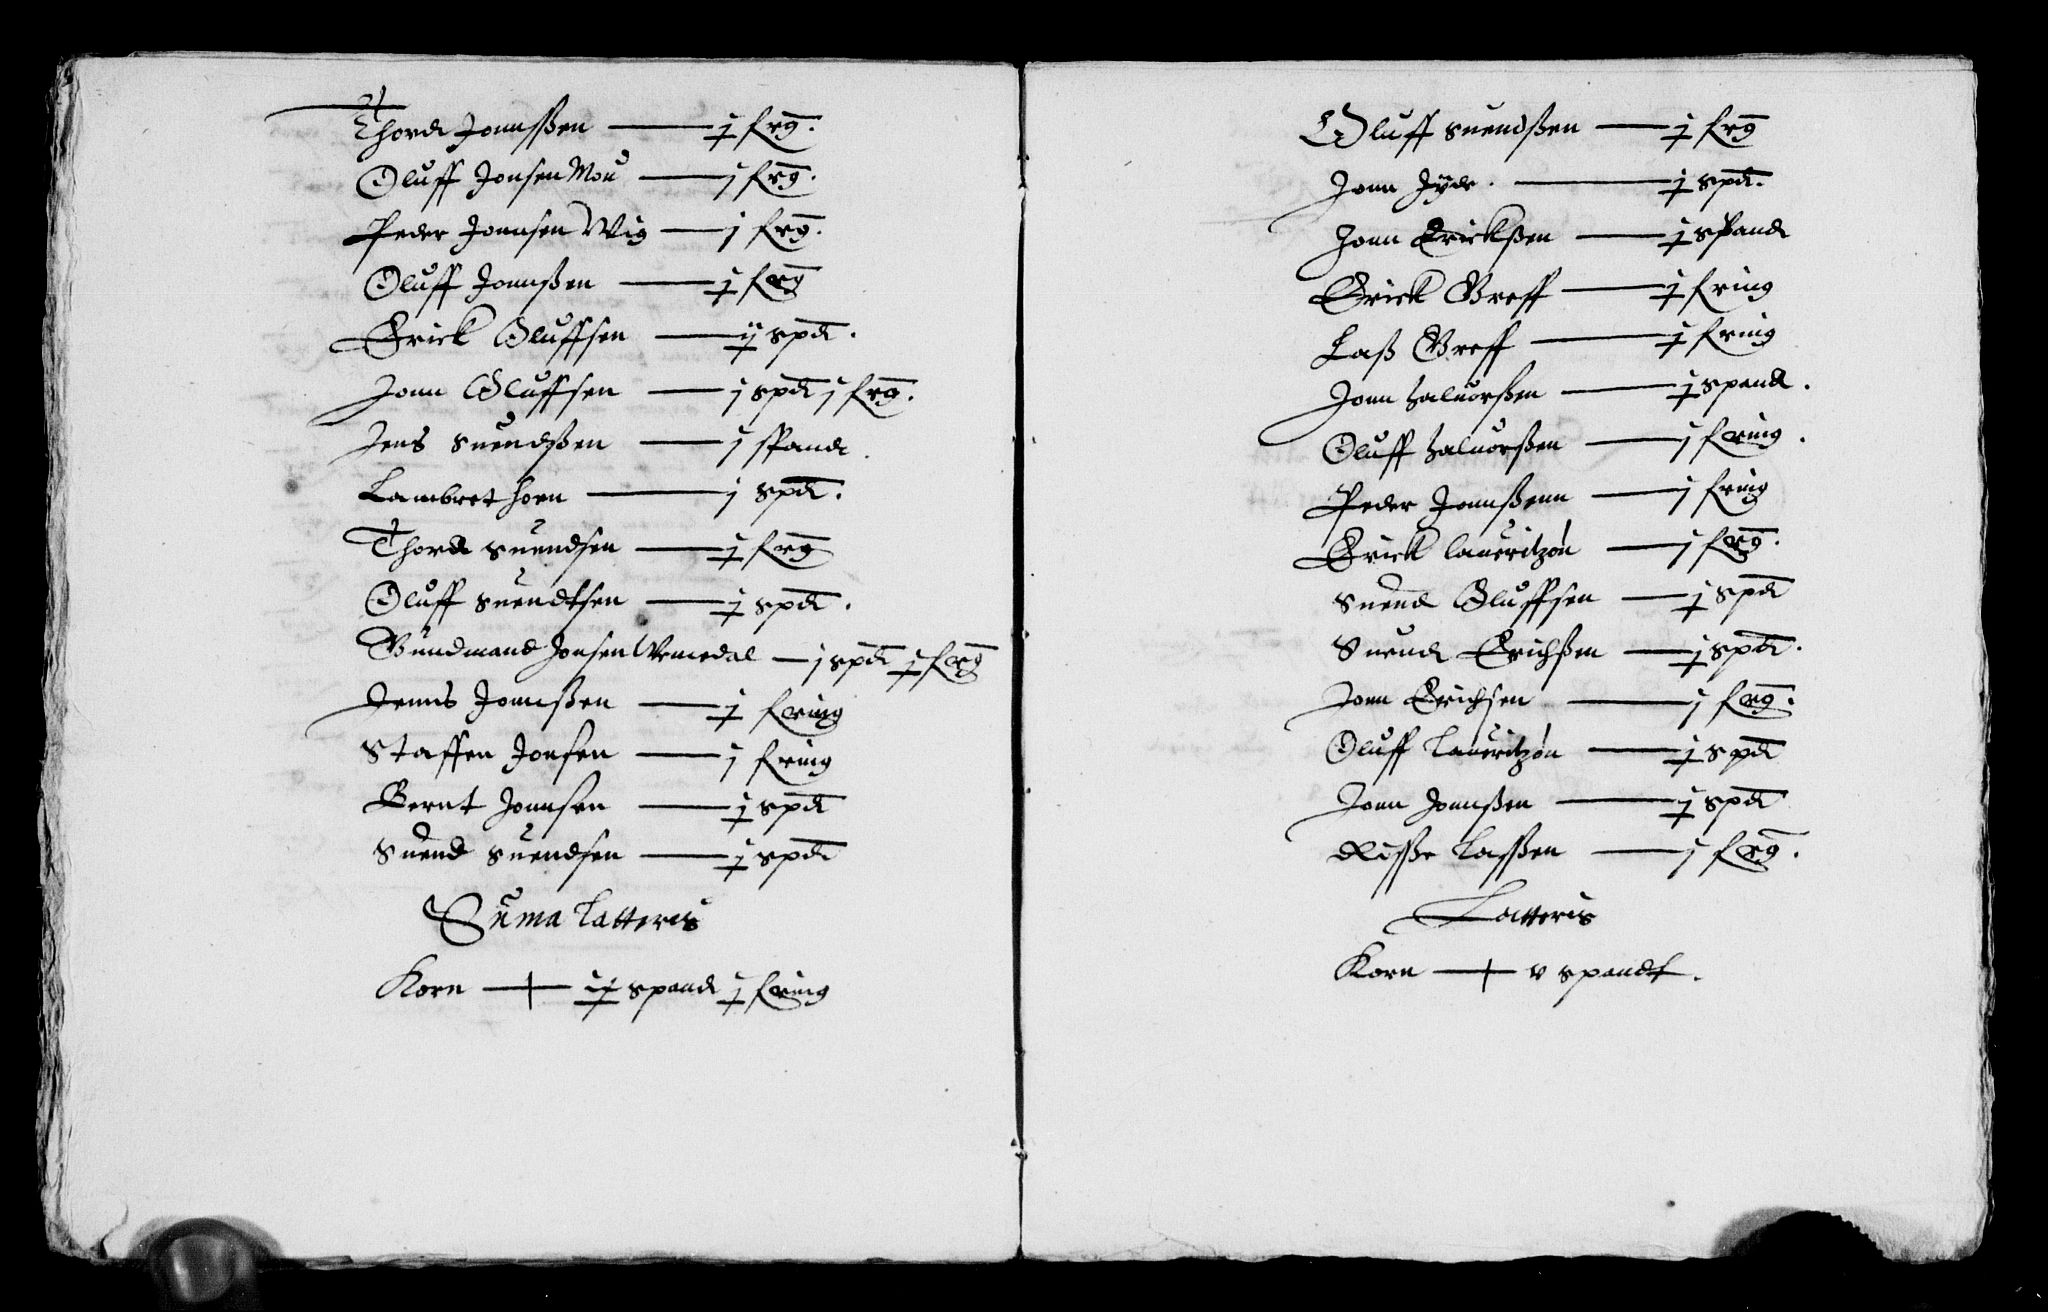 Thord Jonnsßen — j frg.
Oluff Jonsen Mou — j frg.
Peder Jonnsen Wig — j frg.
Oluff Jonnsßen — j frg
Erick Oluffsen — ij spd.
Jonn Oluffsen — j spd j frg.
Jens Suendßen — j spand.
Lambret horn — j spd.
Thord Suendsen — j frg
Oluff Suendtsen — j spd.
Gundmand Jonsen Wemedal — j spd j frg
Jenns Jonnsßen — j fring
Staffen Jonsen — j fring
Bernt Jonnsen — j spd
Suend Suendsen — j spd
Suma Latteris
Korn — spand j fring
Oluff Suendßen — j frg
Jonn Jyde. — j spd.
Jonn Erickßen — j spand
Erick Greff — j fring
Laß Greff — j fring
Jonn Haluorßen — j spand.
Oluff Haluorßen — j fring.
Peder Jonnßenn — j fring
Erick Lauritzøn — j frg.
Suend Oluffsen — j spd
Suend Erichßen — j spd.
Jonn Erichsen — j frg.
Oluff Lauritzøn — j spd
Jonn Jonnßen — j spd
Lasßen — j frg.
Latteris
Korn — v spandt.